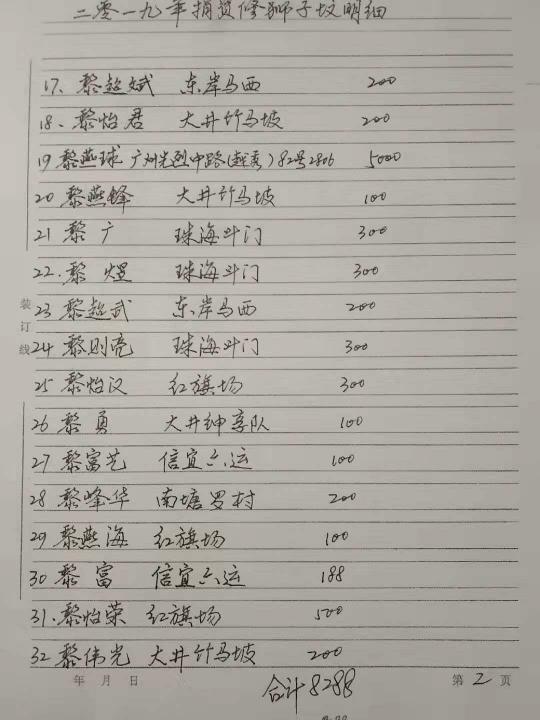 二零一九年捐资修狮子坟明细
17、黎超斌 东岸马西 200
18、黎怡君 大井竹马坡 200
19 黎燕球 广州先烈中路(越秀)82号2806 5000
20 黎燕锋 大井竹马坡 100
21 黎广 珠海斗门 300
22.黎煜 珠海斗门 300
23 黎超武 东岸马西 200
24 黎则亮 珠海斗门 300
25 黎怡汉 红旗场 300
26 黎勇 大井绅享队 100
27 黎富艺 信宜六运 100
28 黎峰华 南塘罗村 200
29 黎燕海 红旗场 100
30 黎富 信宜六运 188
31.黎怡荣 红旗场 500
32 黎伟光 大井竹马坡 200
装订线
年 月 日
合计8288
第 2 页